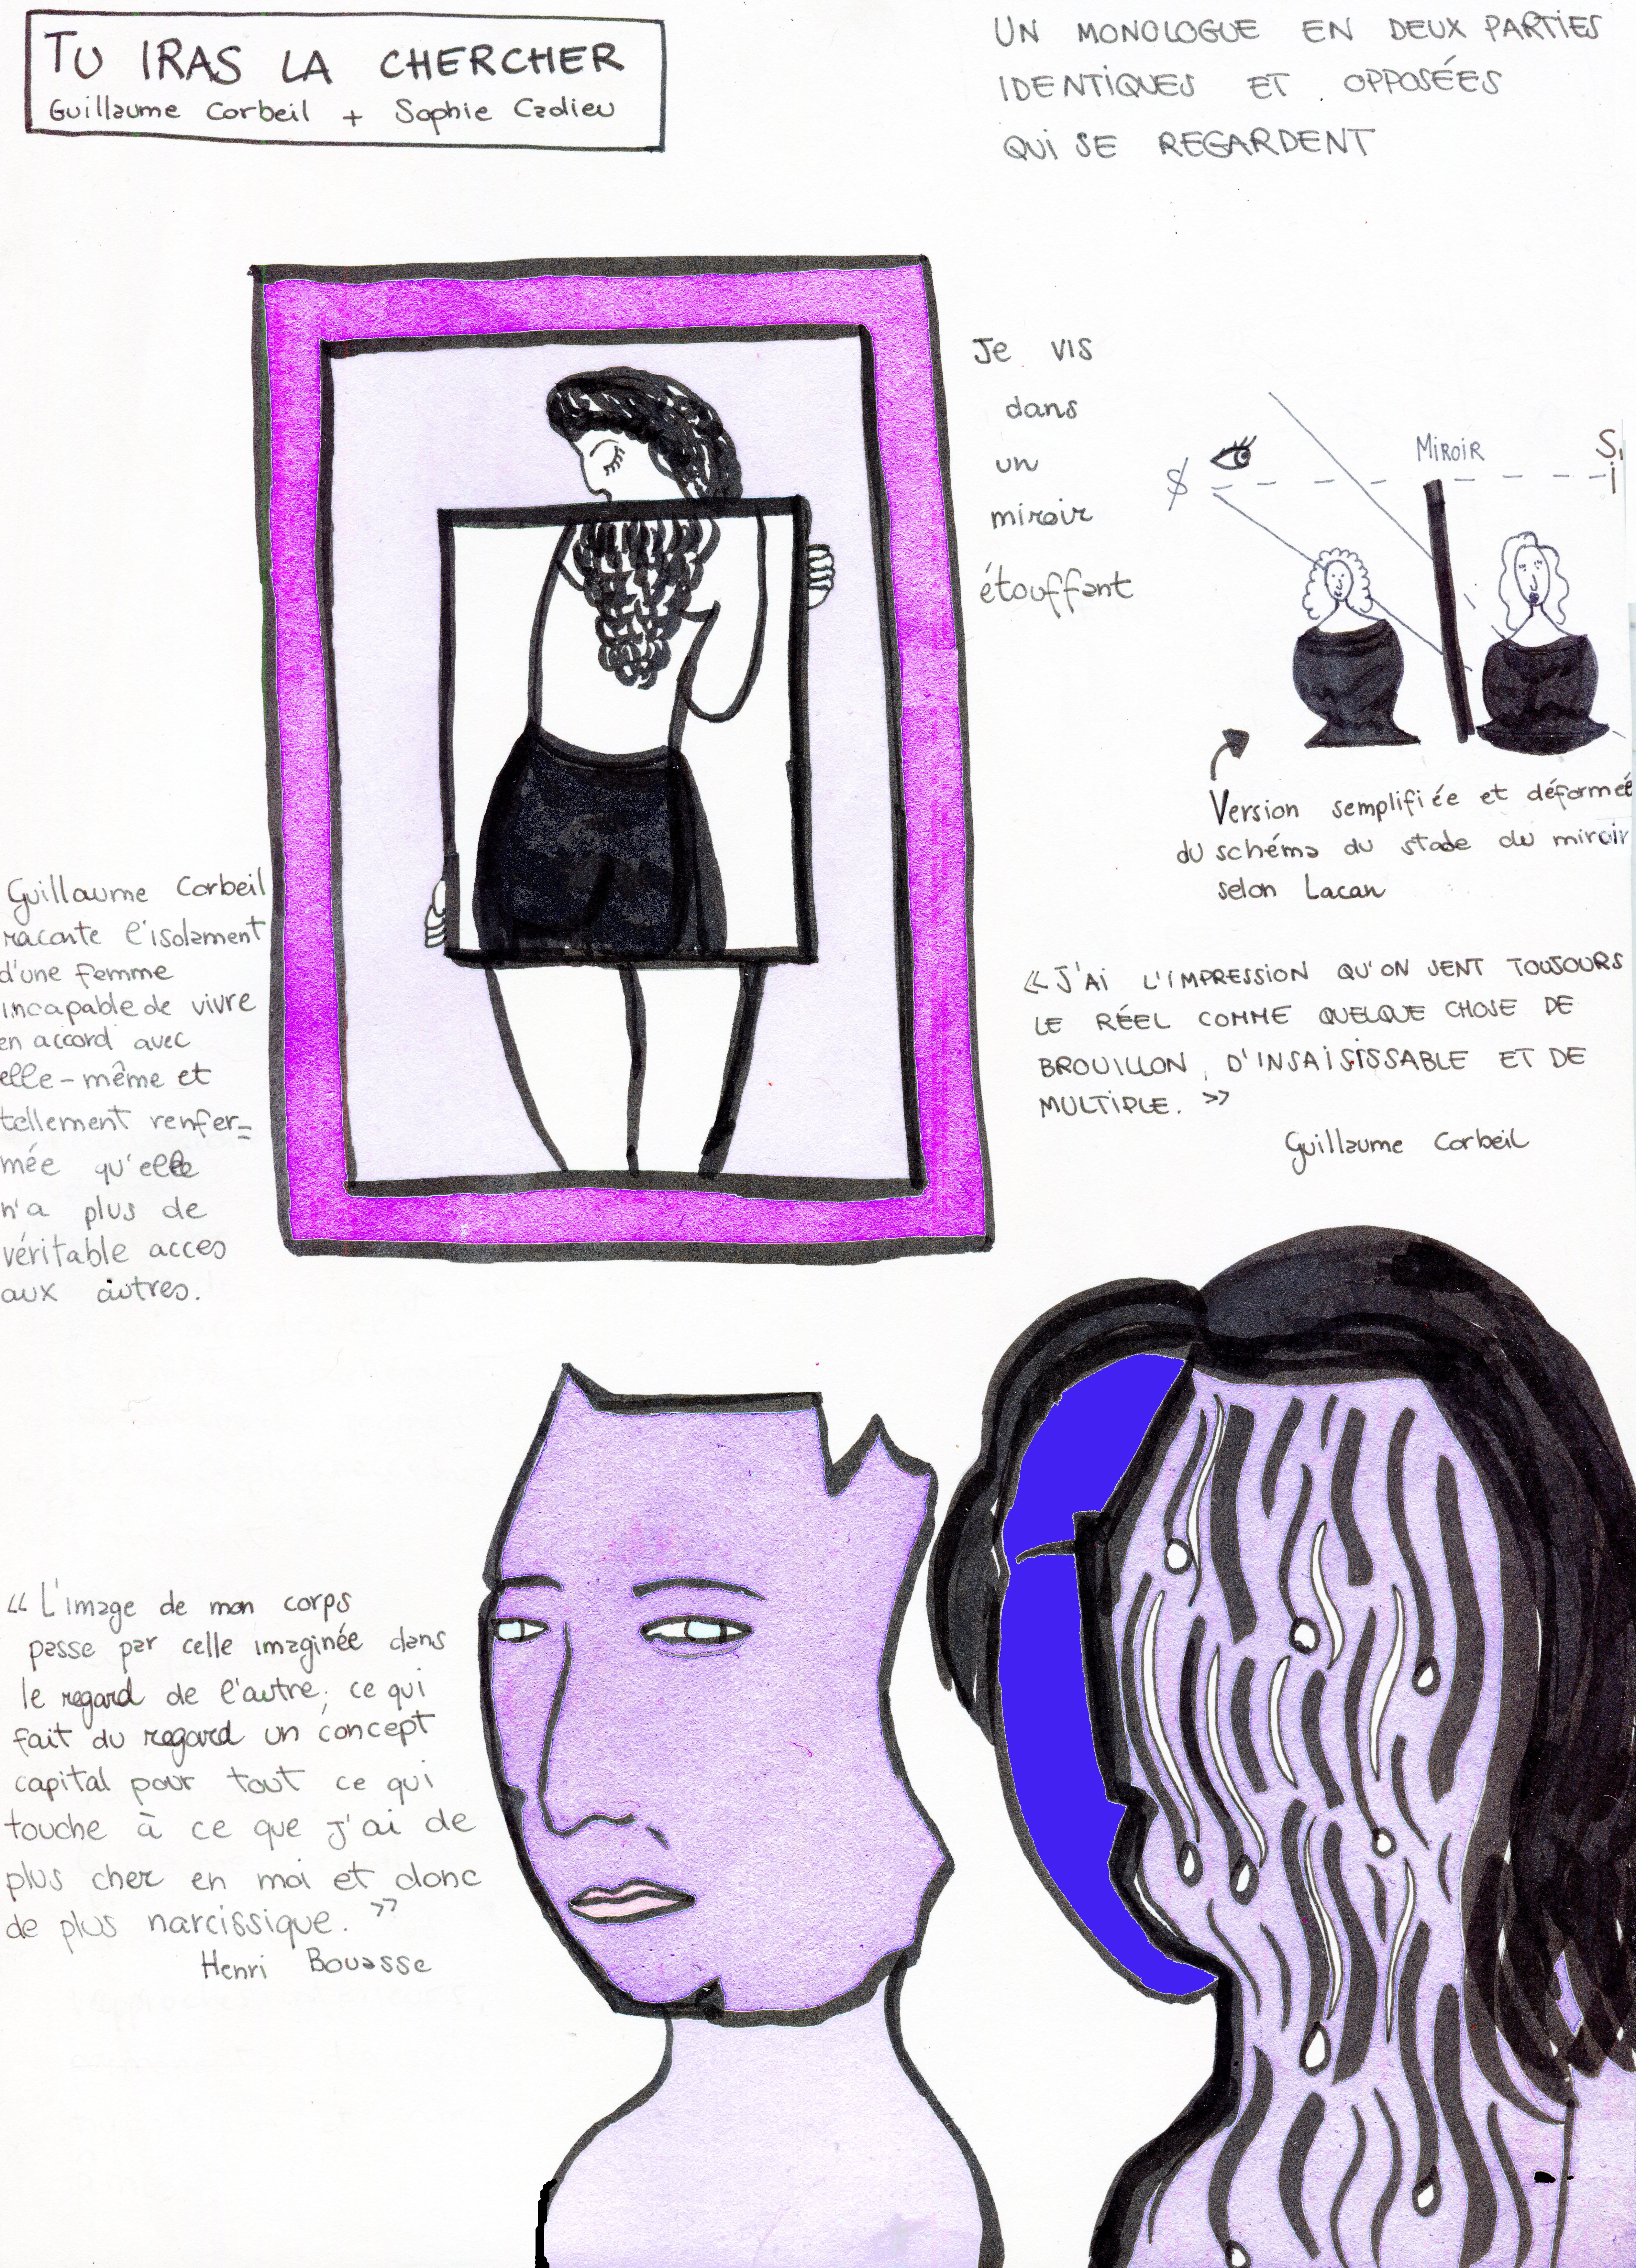 TU IRAS LA CHERCHER
Guillaume Corbeil + Sophie Cadieu
UN MONOLOGUE EN DEUX PARTIES
IDENTIQUES ET OPPOSÉES
QUI SE REGARDENT
Je vis
dans
un
miroir
étouffant
$
MIROIR
S,
i
Version semplifiée et déformée
du schéma du stade du miroir
selon Lacan
Guillaume Corbeil
raconte l'isolement
d'une femme
incapable de vivre
en accord avec
elle-même et
tellement renfer=
mée qu'elle
n'a plus de
véritable acces
aux autres.
« J'AI L'IMPRESSION QU'ON SENT TOUJOURS
LE RÉEL COMME QUELQUE CHOSE DE
BROUILLON, D'INSAISISSABLE ET DE
MULTIPLE. »
Guillaume Corbeil
« L'image de mon corps
passe par celle imaginée dans
le regard de l'autre; ce qui
fait du regard un concept
capital pour tout ce qui
touche à ce que j'ai de
plus cher en moi et donc
de plus narcissique. »
Henri Bouasse